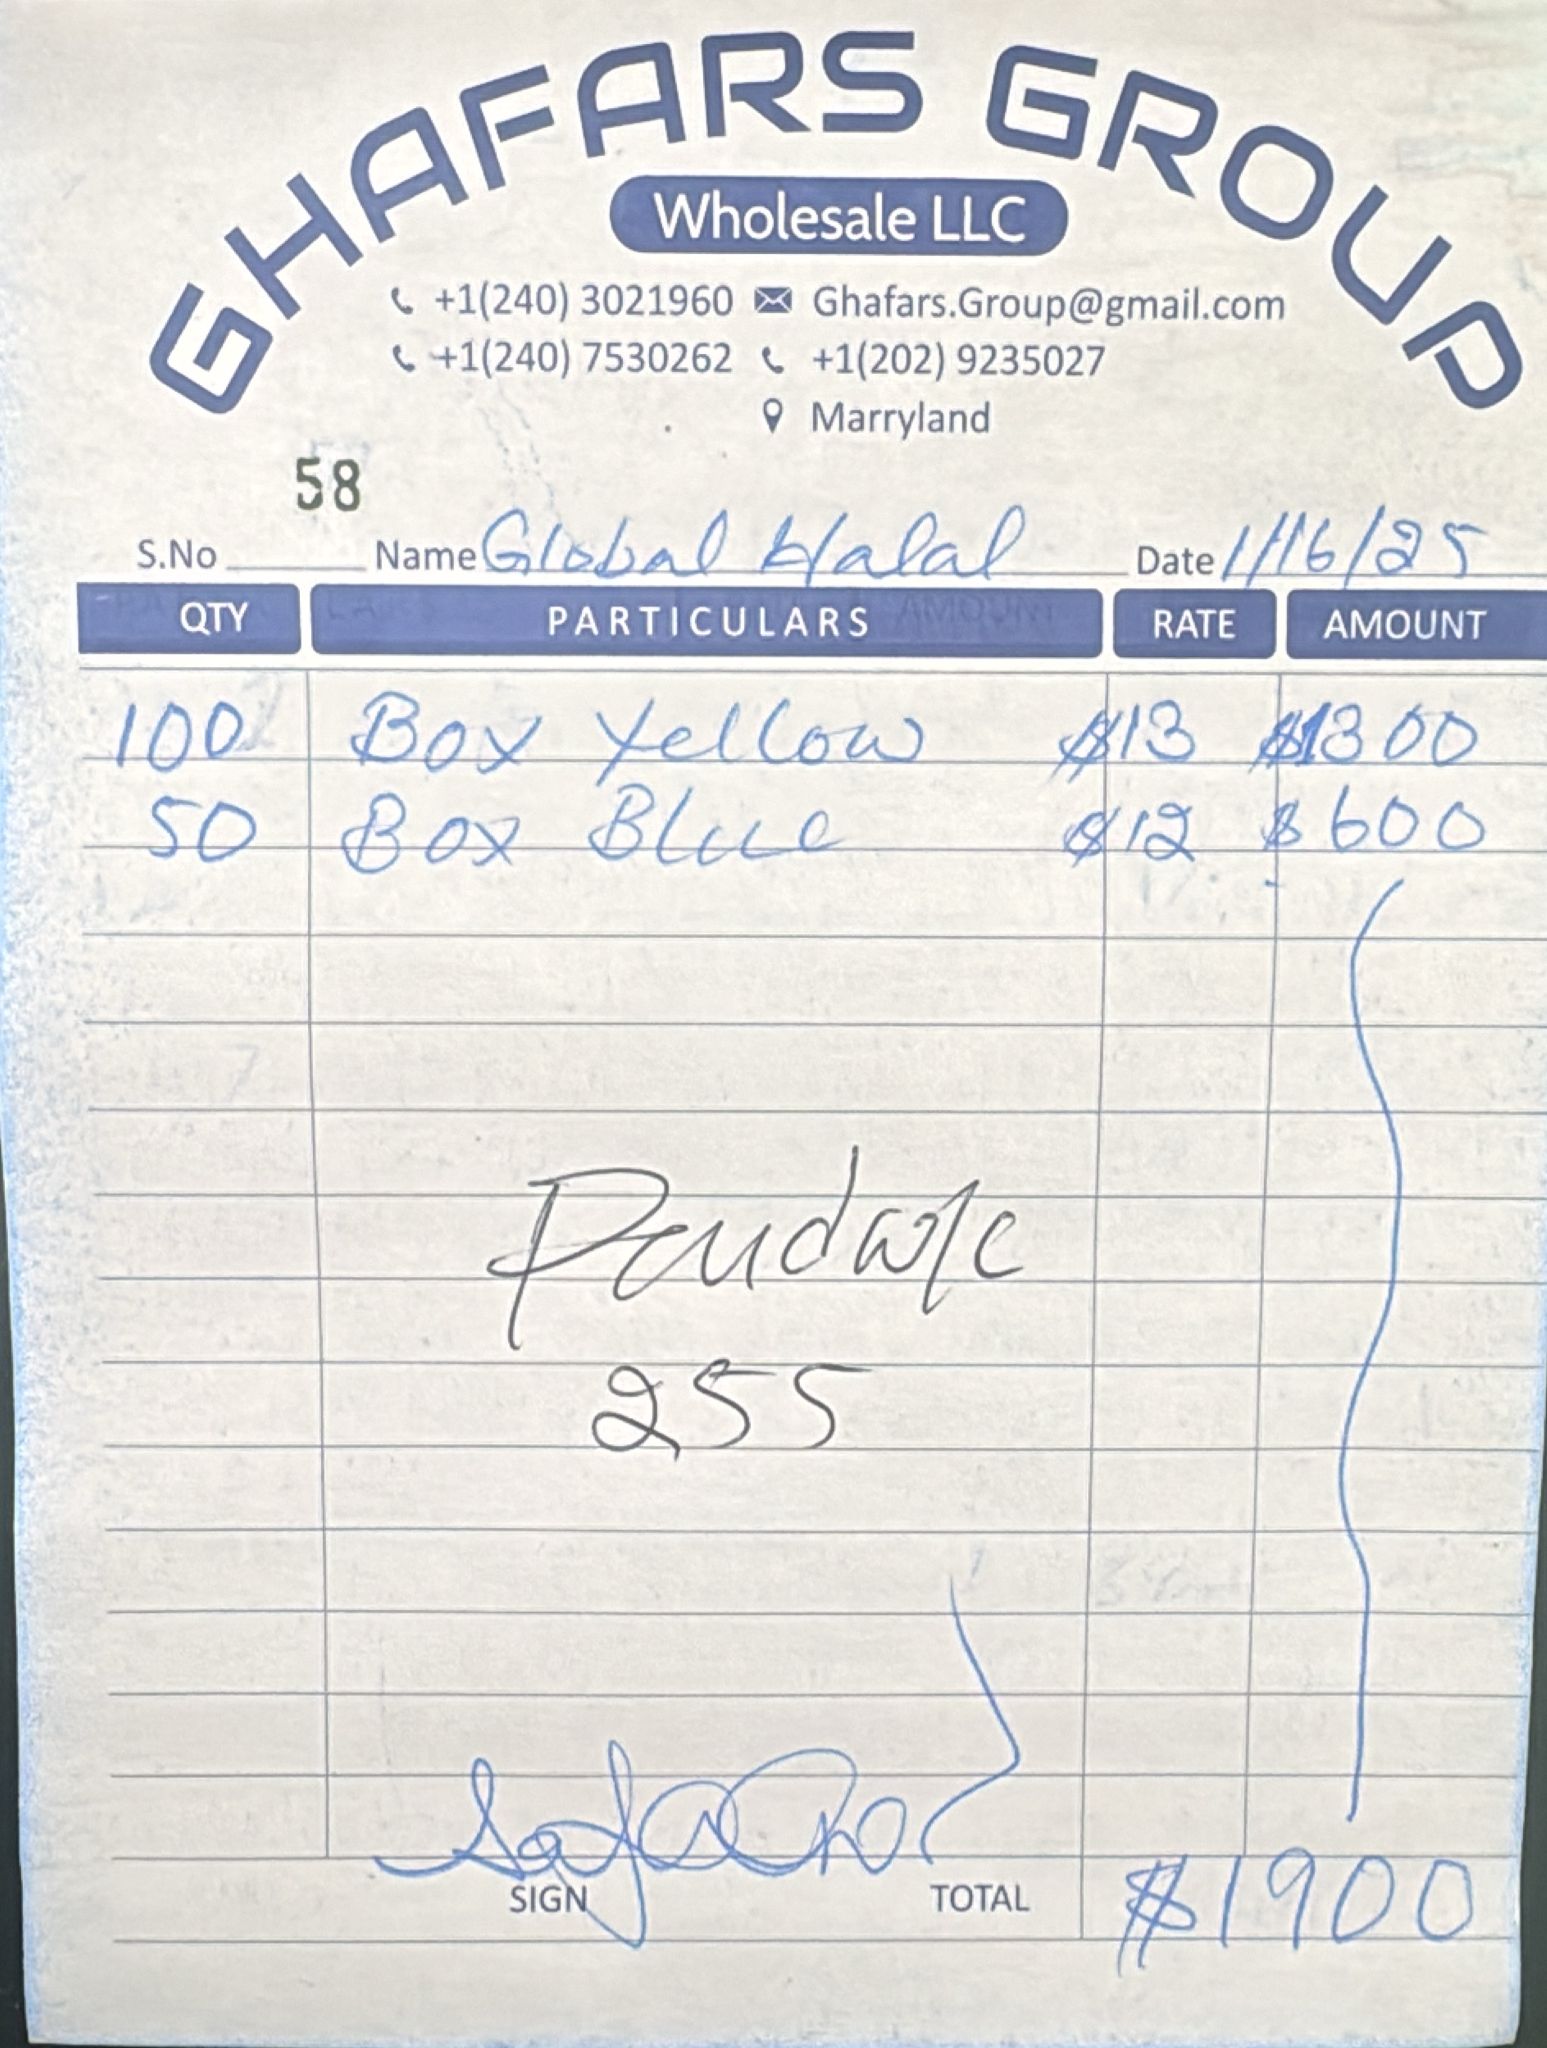 GHAFARS GROUP
Wholesale LLC
+1(240) 3021960 Ghafars.Group@gmail.com
+1(240) 7530262 +1(202) 9235027
Marryland
58
S.No Name Global Halal Date 1/16/25
QTY PARTICULARS RATE AMOUNT
100 Box Yellow $13 $1300
50 Box Blue $12 $600
255
SIGN TOTAL $1900